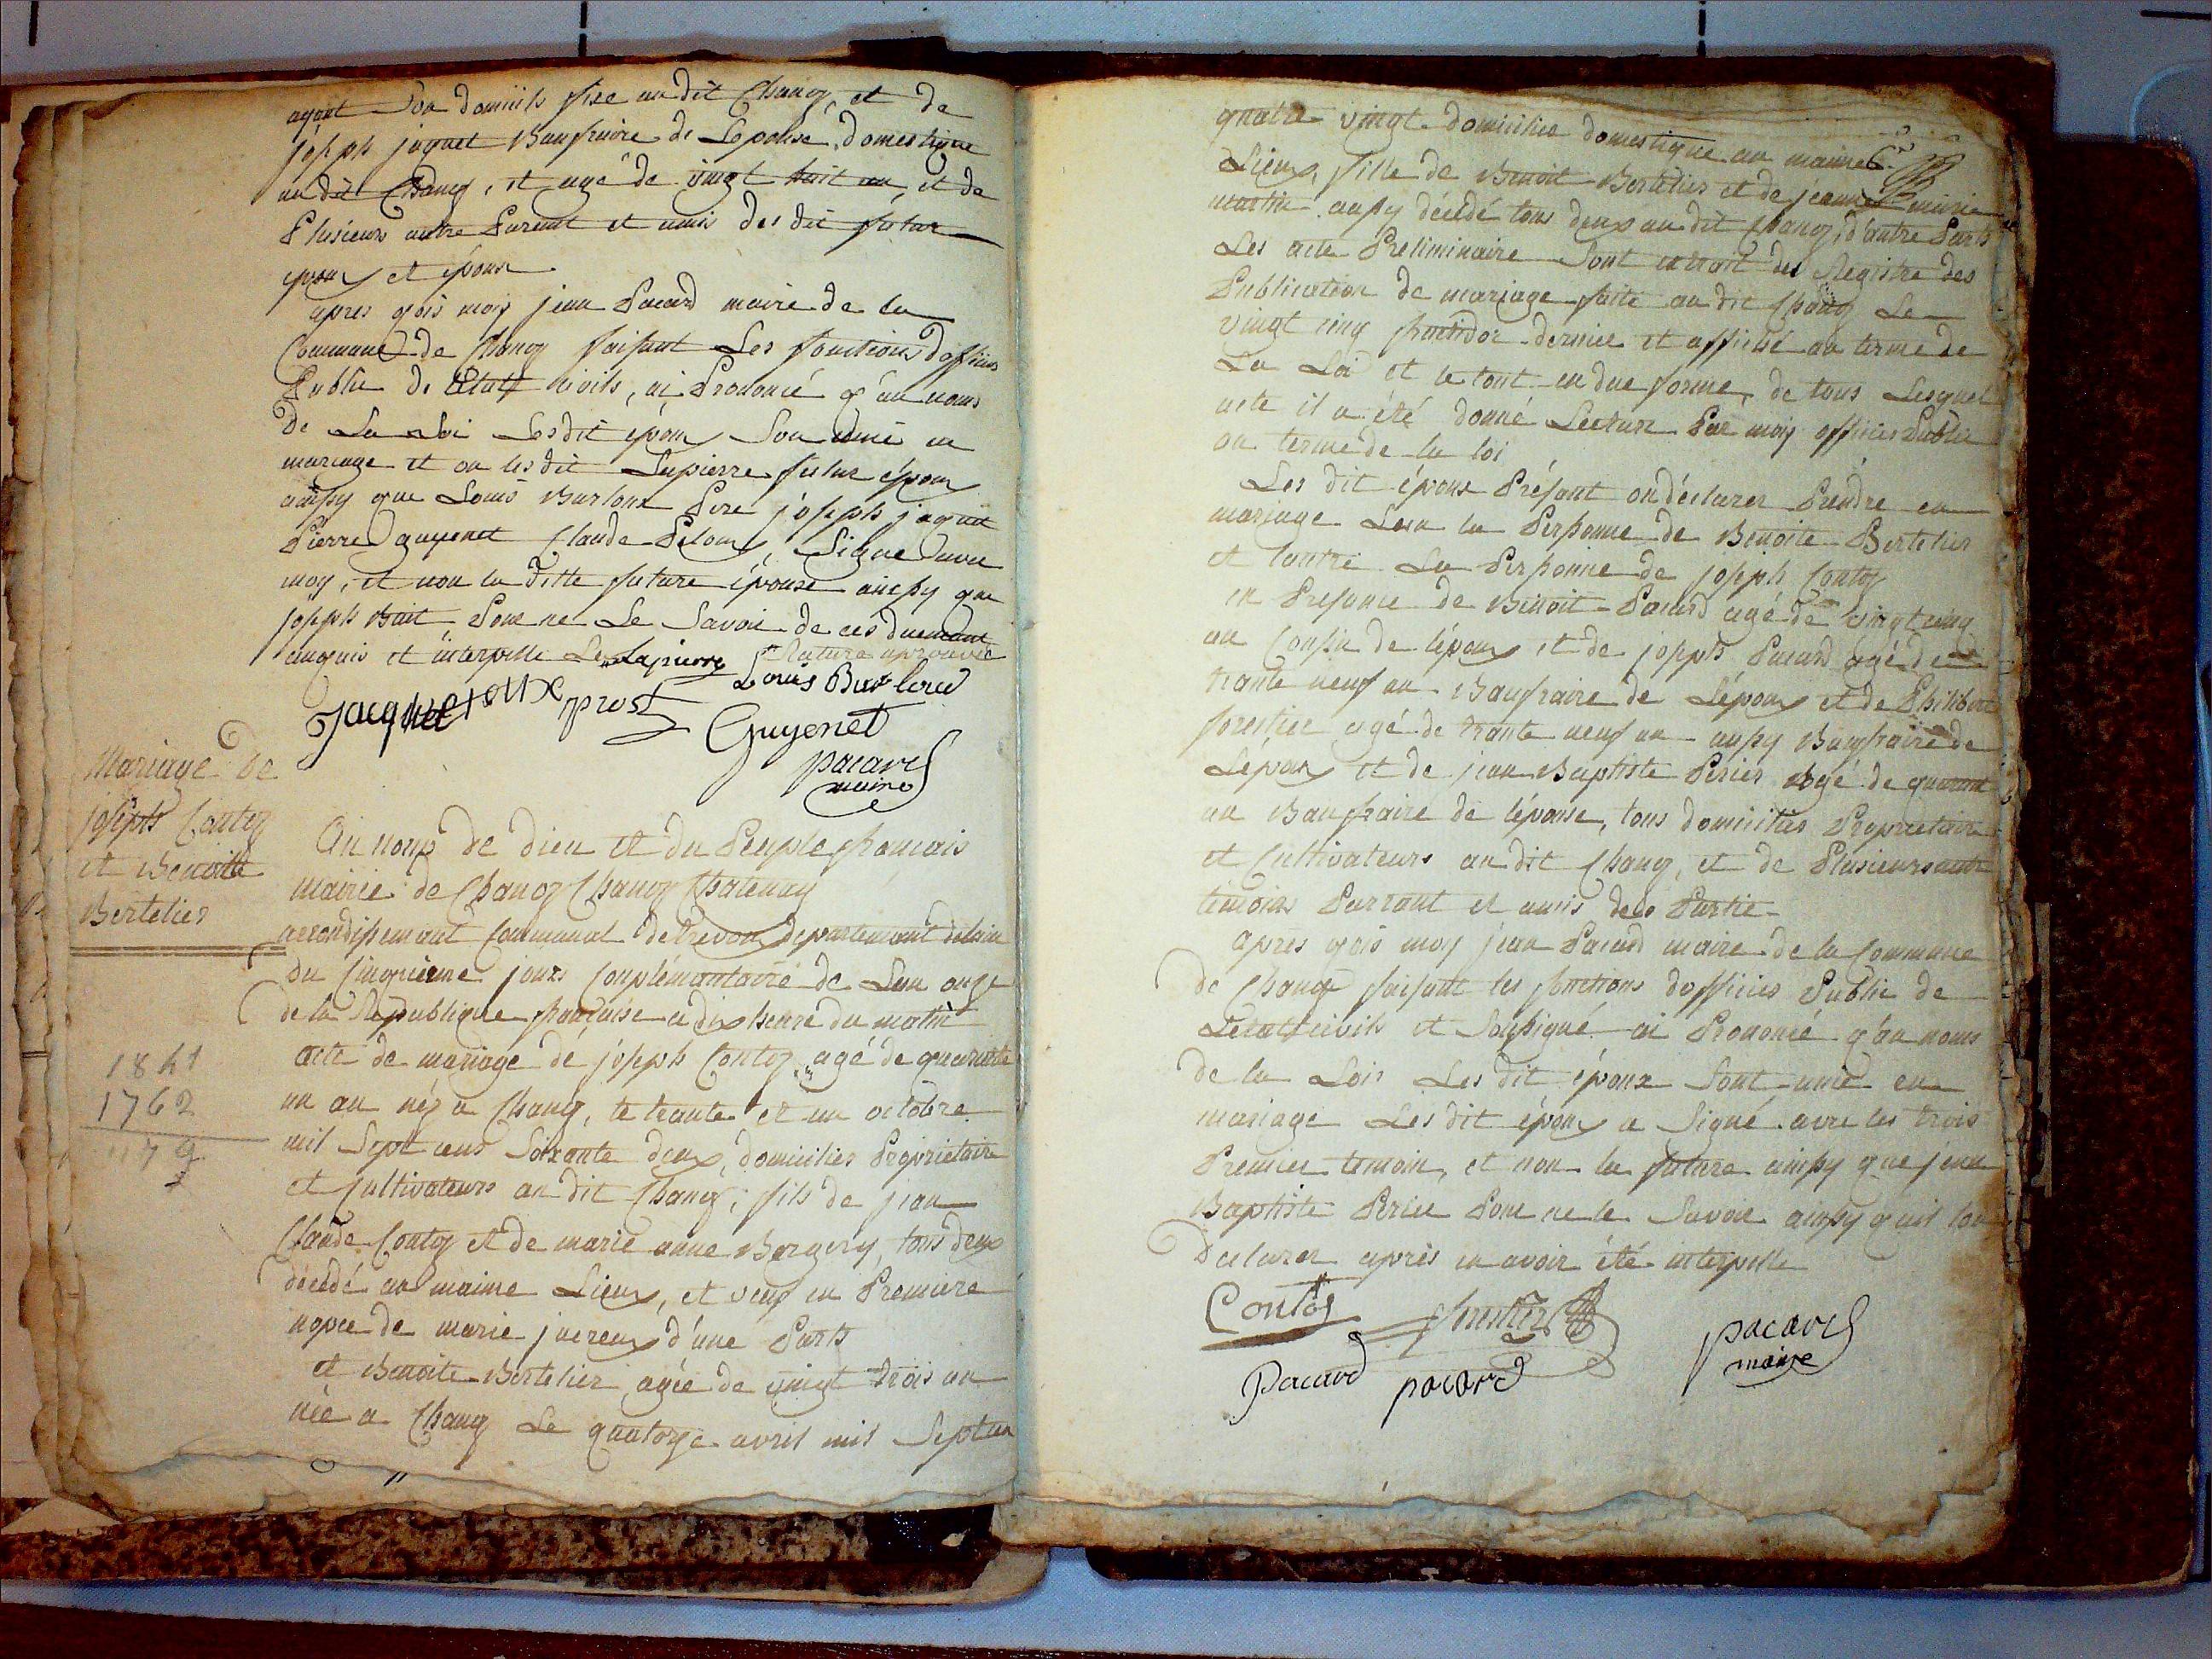 ayant Son domicile fixe au dit Chanoz, et de
joseph jaquet Baufraire de Lepouse, domestique
au dit Chanoz, et agé de vingt huit an, et de
Plusieurs autre Parent et amis des dit futur
epoux et epouse
apres qois moy jean Pacard maire de la
Commune de Chanoz faisant Les fonctions doffiies
Public de Letat civils, ai Prononcé q'au noms
de La Loi Lesdit epoux Son unie en
mariage et on lesdit Lapierre futur époux
ainsy que Louis Burloux Pere joseph jaquet
Pierre guyenet Claude Peloux, Signe avec
moy, et non la ditte future épouse ainsy que
joseph Bait Pour ne Le Savoir de ces duemant
anquis et interpellé Lapierre Rature aprouvée
Louis Burloud
Jacquet oux prost
Guyenet
pacard
maire
Mariage de
joseph Contoz
et Benoite
Bertelier
1841
1762
79
Au noms de dieu et du Peuple francais
mairie de Chanoz Chanoz Chatenay
arrondissemant Communal de Trevoux departement delain
du Cinquieme jours Conplémantaire de Lan onze
de la Republique francaise a dix heure du matin
acte de mariage de joseph Contoz agé de quarante
un an néz a Chanoz, le trante et un octobre
mil Sept cens Soixante deux, domicilies Propriétaire
et Cultivateurs au dit Chanoz, fils de jean
Claude Contoz et de marie anne Borgery, tous deux
décédé au maime Lieux, et veuf en Premiere
nopce de marie juereux d'une Parts
et Benoite Bertelier agée de vingt trois an
née a Chanoz Le quatorze avril mil Septcen
quatre vingt domicilies domestique au maime
Lieux, fille de Benoit Bertelier et de jeanne marie
martin aussy décédé tous deux au dit Chanoz, d'autre Parts
Les acte Preliminaire Sont extrait des Registre des
Publication de mariage faite au dit Chanoz Le
vingt cinq fructidor dernier et affiché au terme de
La Loi et le tout en due forme, de tous Lesquel
acte il a été donné Lecture Par moy officies Public
au terme de la loi
Les dit époux Présant on déclarer Prendre en
mariage Lun la Personne de Benoite Bertelier
et lautre La Personne de joseph Contoz
en Presance de Benoit Pacard agé de vingt cinq
an Cousin de lépoux et de joseph Pacard agé de
trante neuf an Baufraire de Lépoux et de Philibert
forestier agé de trante neuf an aussy Baufraire de
Lépoux et de jean Baptiste Perier agé de quarant
an Baufraire de lépouse, tous domicilies Proprietaire
et Cultivateurs au dit Chanoz, et de Plusieurs autre
temoins Parrant et amis des Partie
apres qois moy jean Pacard maire de la Commune
de Chanoz faisant les fonctions dofficies Public de
Letat civils et Soussigné ai Prononcé q'au noms
de la Lois Les dit époux Sont unie en
mariage Les dit époux a Signé avec les trois
Premier temoin, et non la future ainsy que jean
Baptiste Perier Pour ne le Savoir ainsy quil lon
declarer après en avoir été interpellé
Contoz forestier
pacard
maire
Pacard pacard